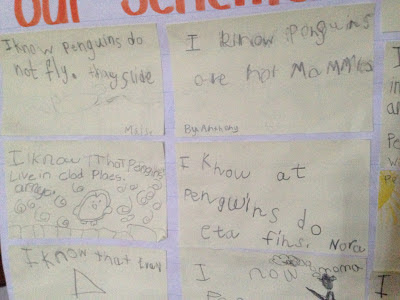 Our Schema
I know Penguins do
not fly. they slide
I know Penguins
are not MaMMles
By Anthony
I know That Penguins
Live in clod Places.
I know at
penguins do
eta fihs. Nora
I know that
I now